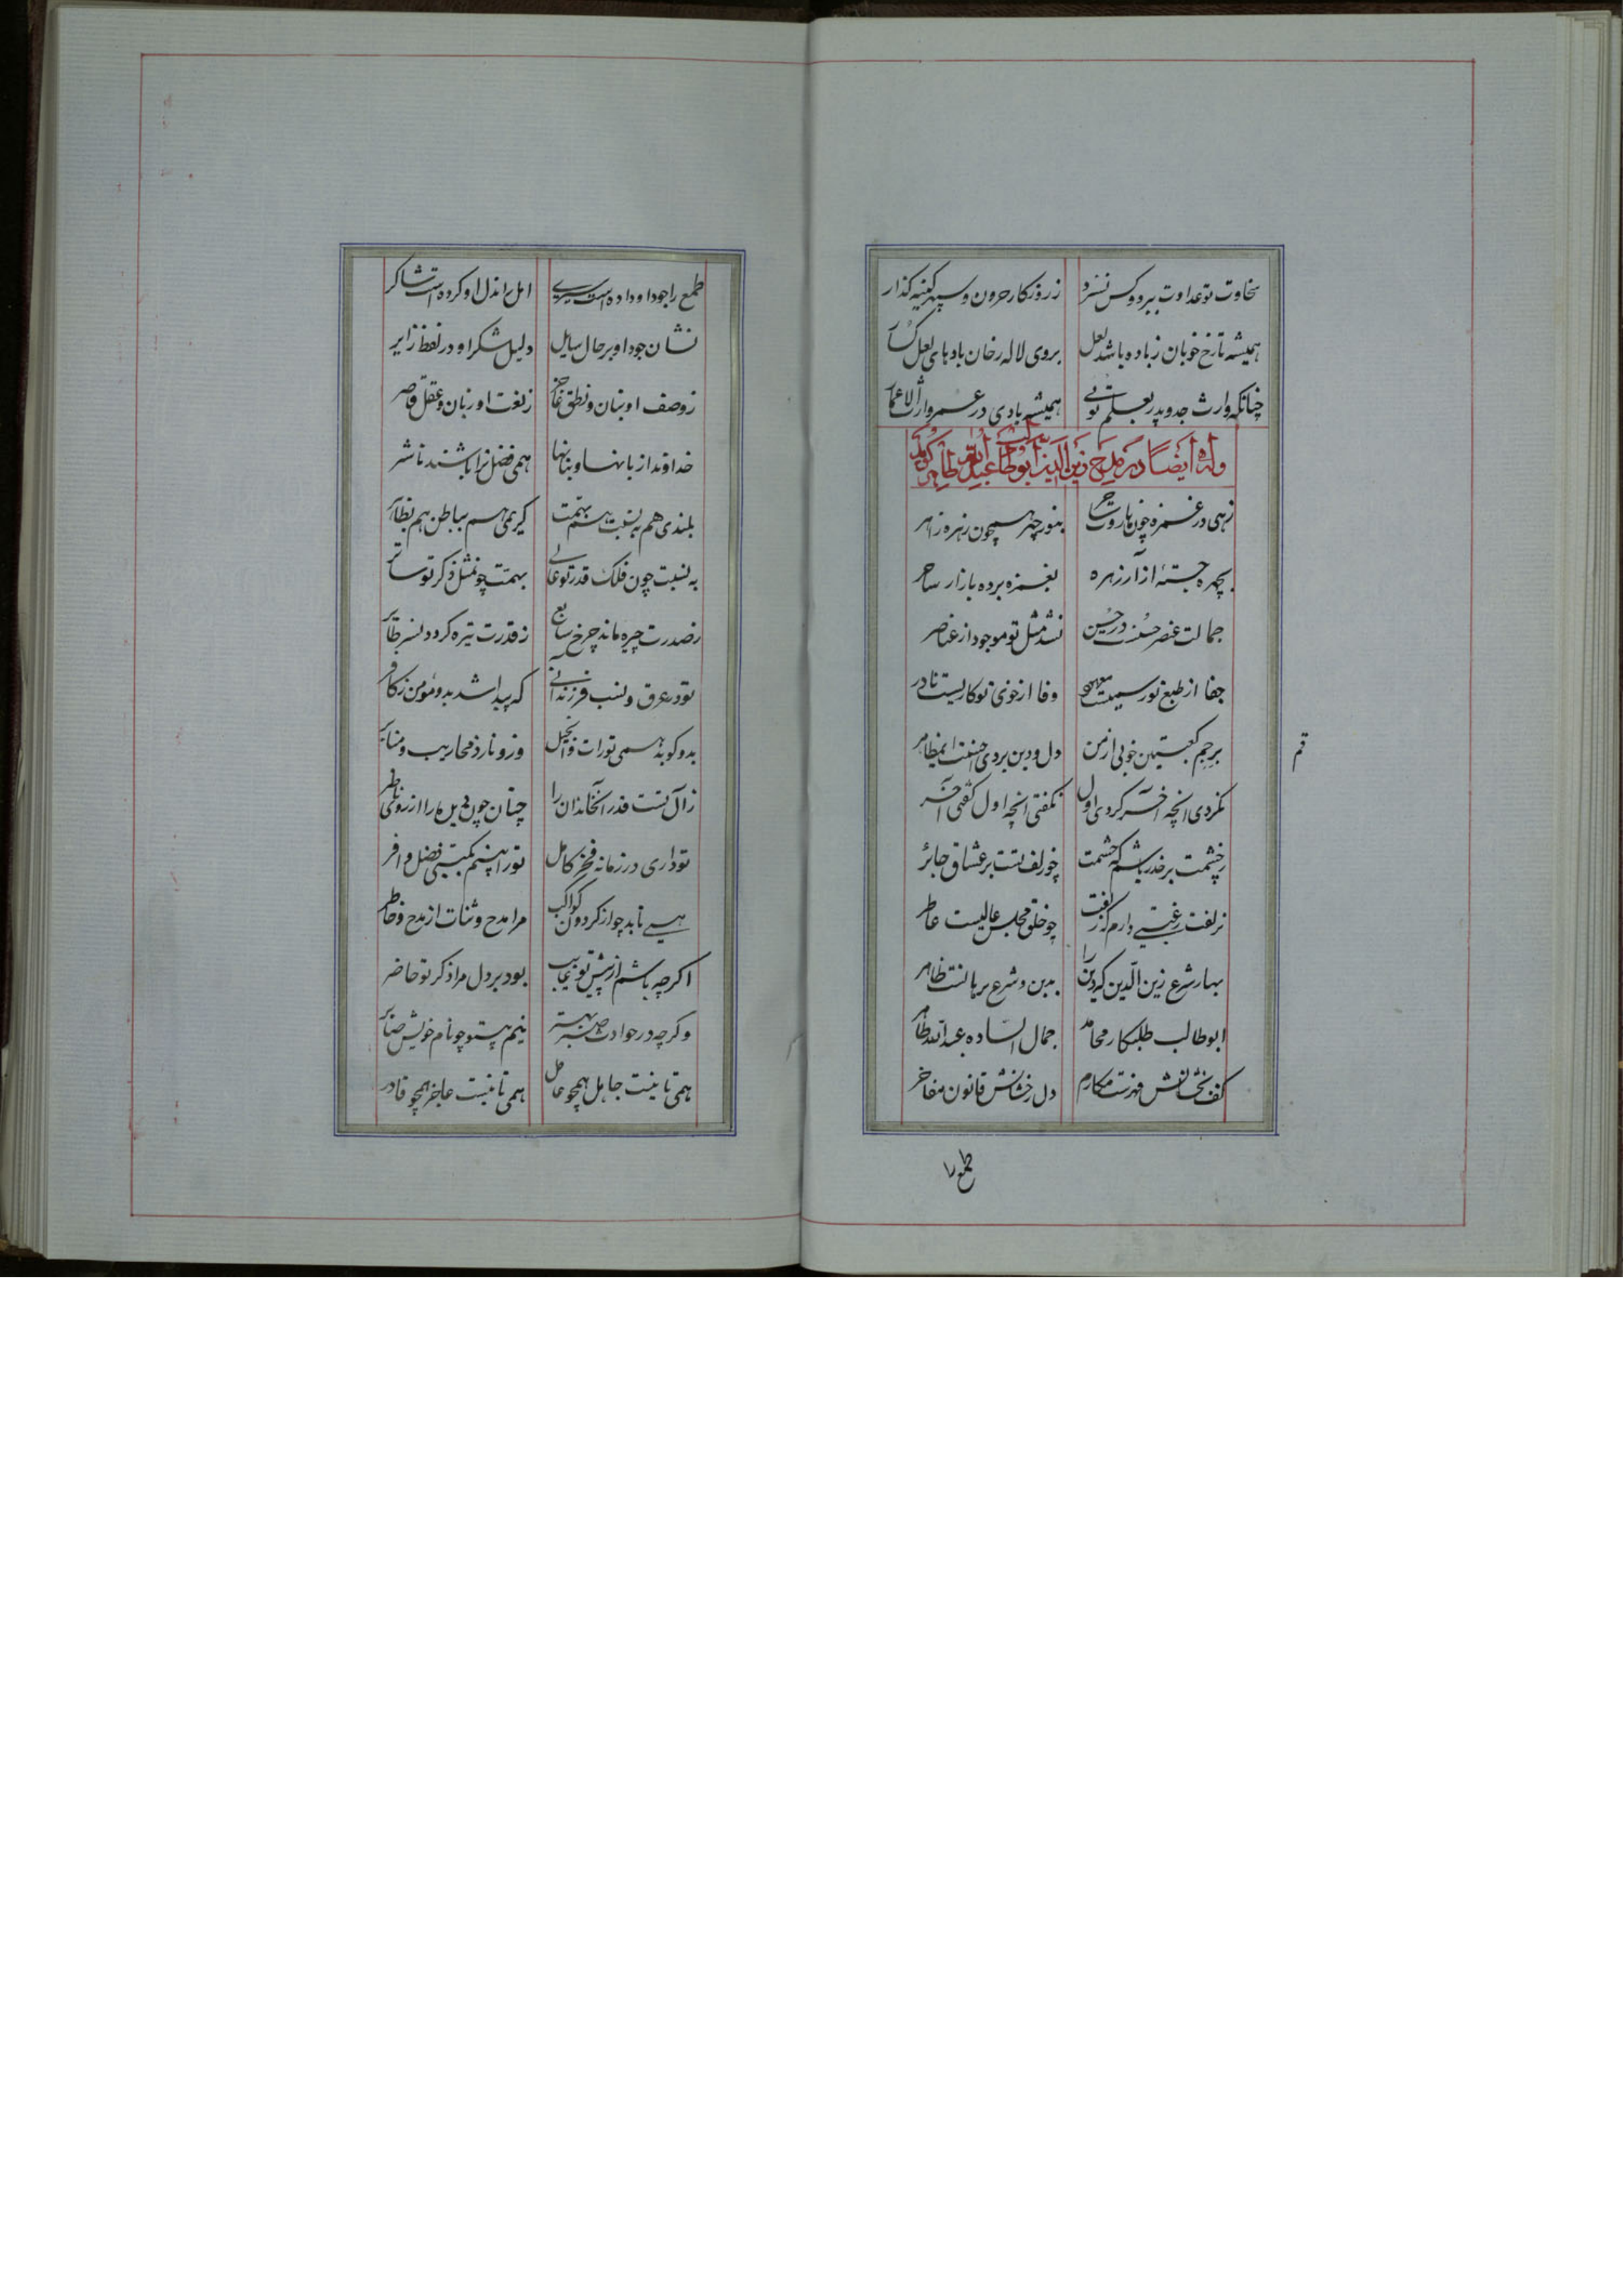 سخاوت تو عداوت ببرد و کس نبرد زروزکار حرون و سپهر کینه کذار
همیشه تا رخ خوبان ز باده باشد لعل بروی لاله رخان بادهای لعل
چنانکه وارث جد و پدر بعلم توئی همیشه بادی در عمر وارث الاعمار
وله ایضا در مدح زین الدین ابوطالب عبدالله طاهر کوید
زهی در غمزه چون هاروت بنور چهره همچون زهره زاهر
بچهره جسته از آزار زهره بغمزه برده بازار ساحر
جمالت عنصر حسنست در حسن نشد مثل تو موجود از عناصر
جفا از طبع تو رسمیست معهود وفا از خوی تو کاریست نادر
برجم کعبتین خوبی از من دل و دین بردی احسنت ای مقامر
نکردی انچه اخر کردی اول نکفتی انچه اول کفتی آخر
زچشمت بر حذر باشم که چشمت چو زلف تست بر عشاق جائر
بزلفت رغبتی دارم که زلفت چو خلق مجلس عالیست عاطر
بهار شرع زین الدین که دین را بدین و شرع برهانست ظاهر
ابوطالب طلبکار محامد جمال الساده عبدالله طاهر
کف بخشانش فهرست مکارم دل رخشانش قانون مفاخر
طمع را
قم
طمع را جود او داده است سیری امل را بذل او کرده است شاکر
نشان جود او بر حال سایل دلیل شکر او در لفظ زایر
ز وصف او بنان و نطق عاجز ز نعت او زبان و عقل قاصر
خداوندا زبانها و بنانها همی فضل ترا باشند ناشر
بلندی هم به نسبت هم بهمت کریمی هم بباطن هم بظاهر
به نسبت چون فلک قدر تو عالی بهمت چو مثل ذکر تو سائر
ز صدرت چیره ماند چرخ سابع ز قدرت تیره کردد نسر طایر
تو در عرق و نسب فرزند آنی که پیدا شد بدو مؤمن ز کافر
بدو کوبد همی تورات و انجیل وزو نازد محاریب و منابر
ز آل تست قدر آنخاندان را چنان چون دیده را از روی ناظر
تو داری در زمانه فخر کامل تو را بینم بکیتی فضل وافر
همی تابد چو از کردون کواکب مرا مدح و ثنات از مدح و خاطر
اکرچه باشم از پیش تو غایب بود بر دل مرا ذکر تو حاضر
وکرچه در حوادث صبر بهتر نیم پیش تو چو نام خویش صابر
همی تا نیست جاهل همچو عاقل همی تا نیست عاجز همچو قادر